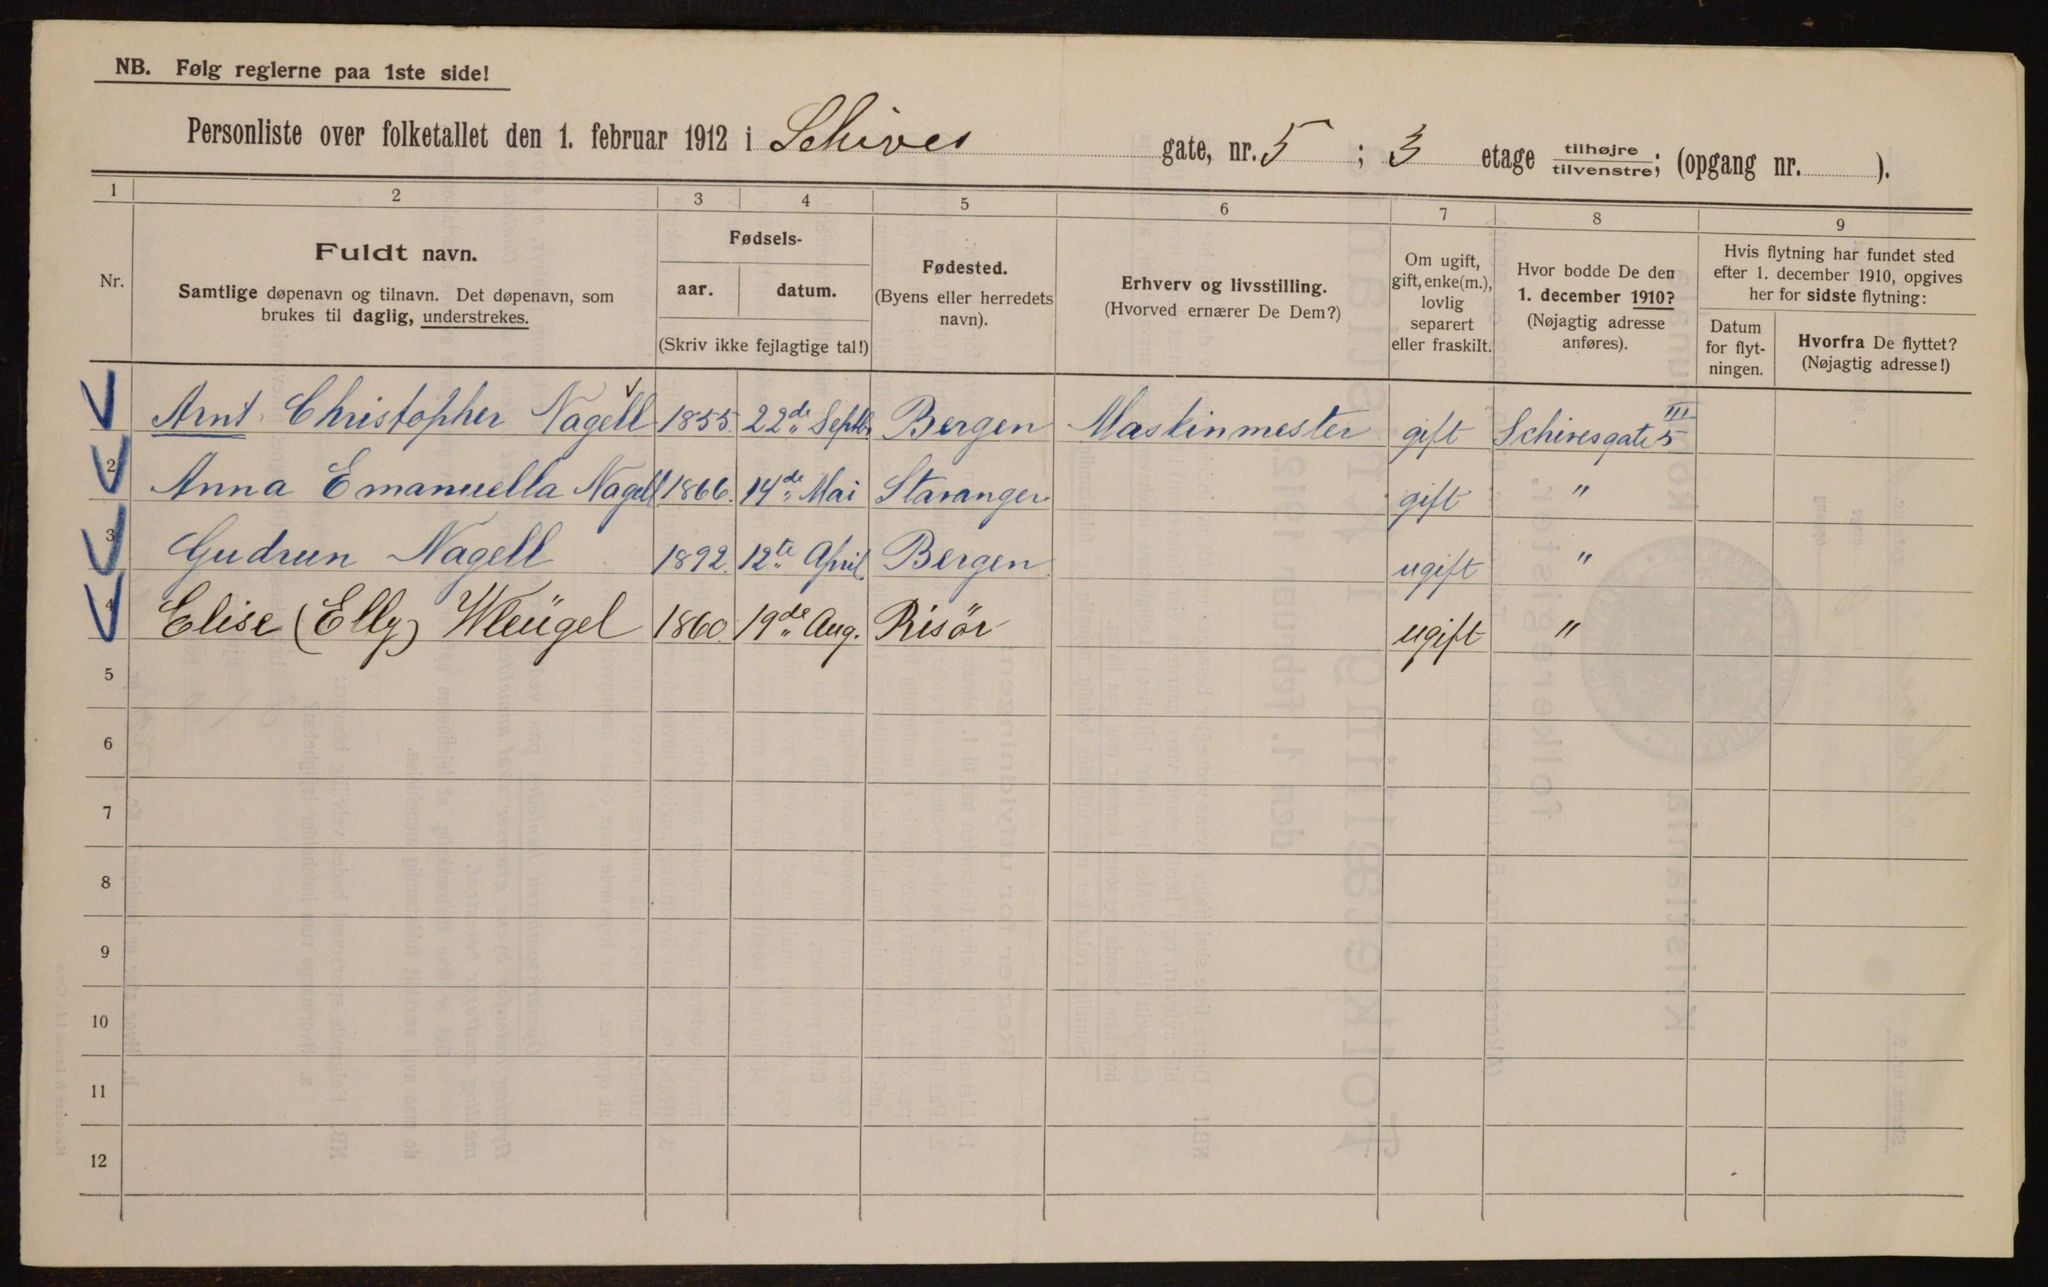 NB. Følg reglerne paa 1ste side!
Personliste over folketallet den 1. februar 1912 i Schives gate, nr. 5 ; 3 etage tilhøjre/tilvenstre; (opgang nr. ).
1 2 3 4 5 6 7 8 9
Nr.
Fuldt navn.
Samtlige døpenavn og tilnavn. Det døpenavn, som
brukes til daglig, understrekes.
Fødsels-
aar. datum.
(Skriv ikke fejlagtige tal!)
Fødested.
(Byens eller herredets
navn).
Erhverv og livsstilling.
(Hvorved ernærer De Dem?)
Om ugift,
gift, enke(m.),
lovlig
separert
eller fraskilt.
Hvor bodde De den
1. december 1910?
(Nøjagtig adresse
anføres).
Hvis flytning har fundet sted
efter 1. december 1910, opgives
her for sidste flytning:
Datum
for flyt-
ningen.
Hvorfra De flyttet?
(Nøjagtig adresse!)
Arnt Christopher Nagell 1855. 22de Septbr. Bergen Maskinmester gift Schivesgate 5 III
2 Anna Emanuella Nagell 1866. 14de Mai Stavanger gift "
3 Gudrun Nagell 1892. 12te April. Bergen. ugift "
4 Elise (Elly) Wleügel 1860. 19de Aug. Risör ugift "
5
6
7
8
9
10
11
12